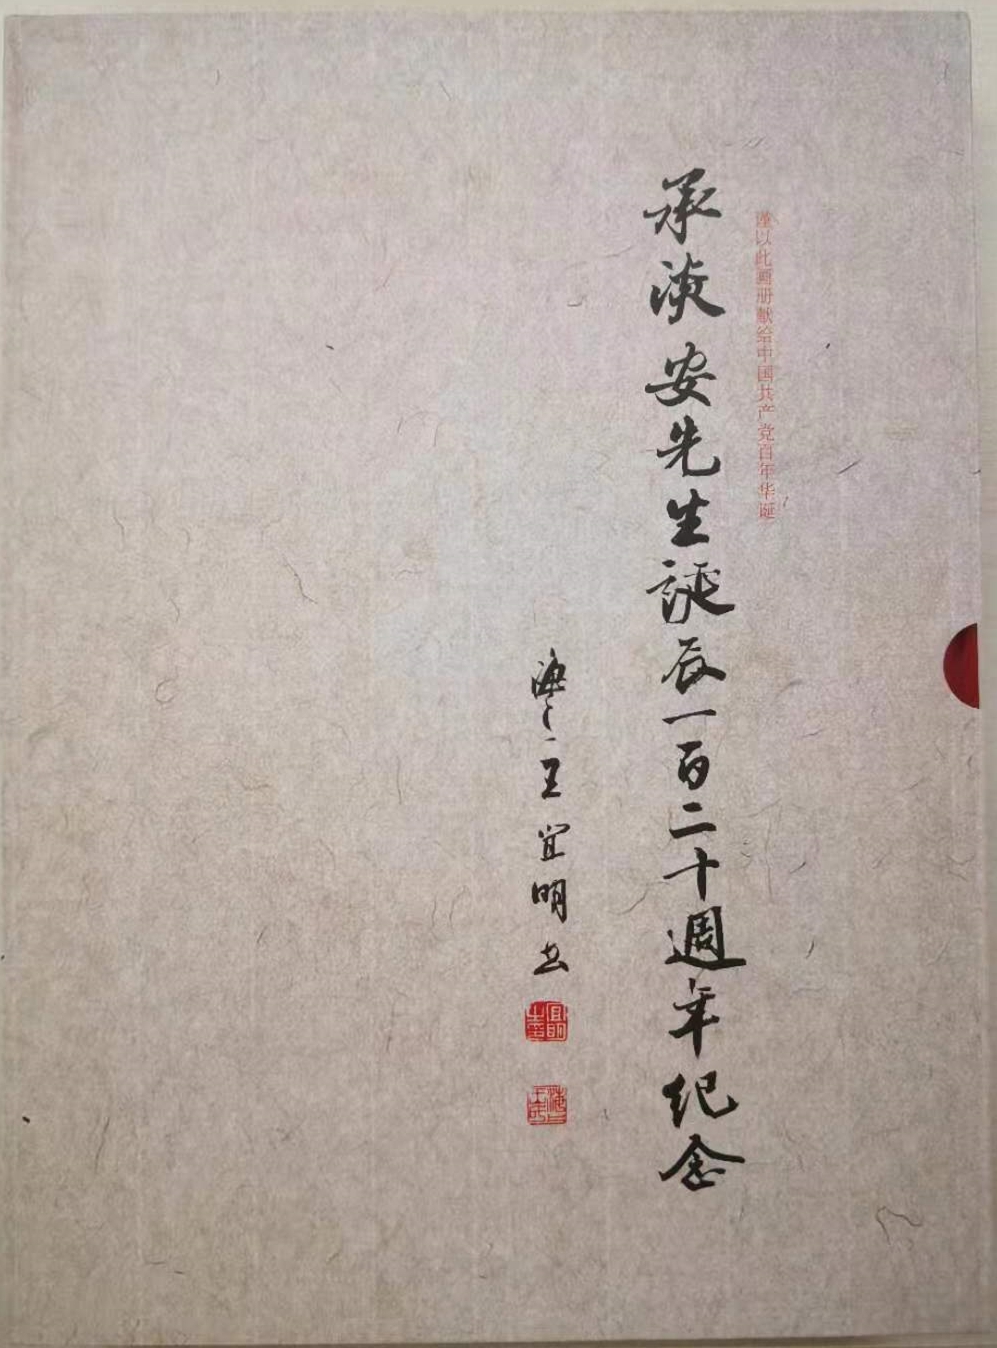 谨以此画册献给中国共产党百年华诞
承淡安先生誕辰一百二十週年纪念
王宜明书